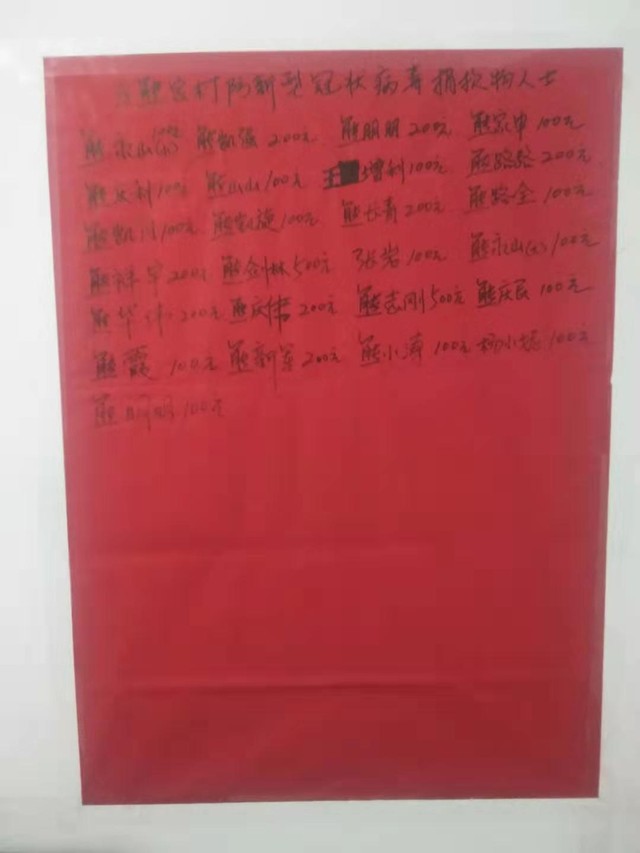 熊家村防新型冠状病毒捐款物人士
熊永山(小)100元 熊凯强200元 熊明明200元 熊家申100元
熊永利100元 熊山山100元 王增利100元 熊路路200元
熊凯川100元 熊凯旋100元 熊长青200元 熊路全100元
熊祥早200元 熊剑林500元 张岩100元 熊永山(大)100元
熊华伟200元 熊庆伟200元 熊志刚500元 熊庆民100元
熊霞100元 熊新军200元 熊小涛100元 杨小 100元
熊明明100元